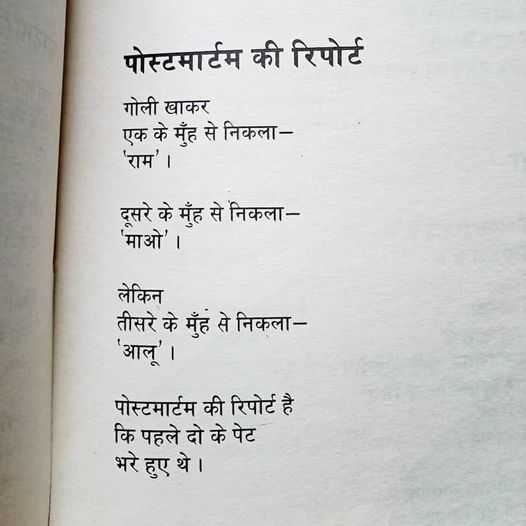 पोस्टमार्टम की रिपोर्ट
गोली खाकर
एक के मुँह से निकला—
'राम' ।
दूसरे के मुँह से निकला—
'माओ' ।
लेकिन
तीसरे के मुँह से निकला—
'आलू' ।
पोस्टमार्टम की रिपोर्ट है
कि पहले दो के पेट
भरे हुए थे ।